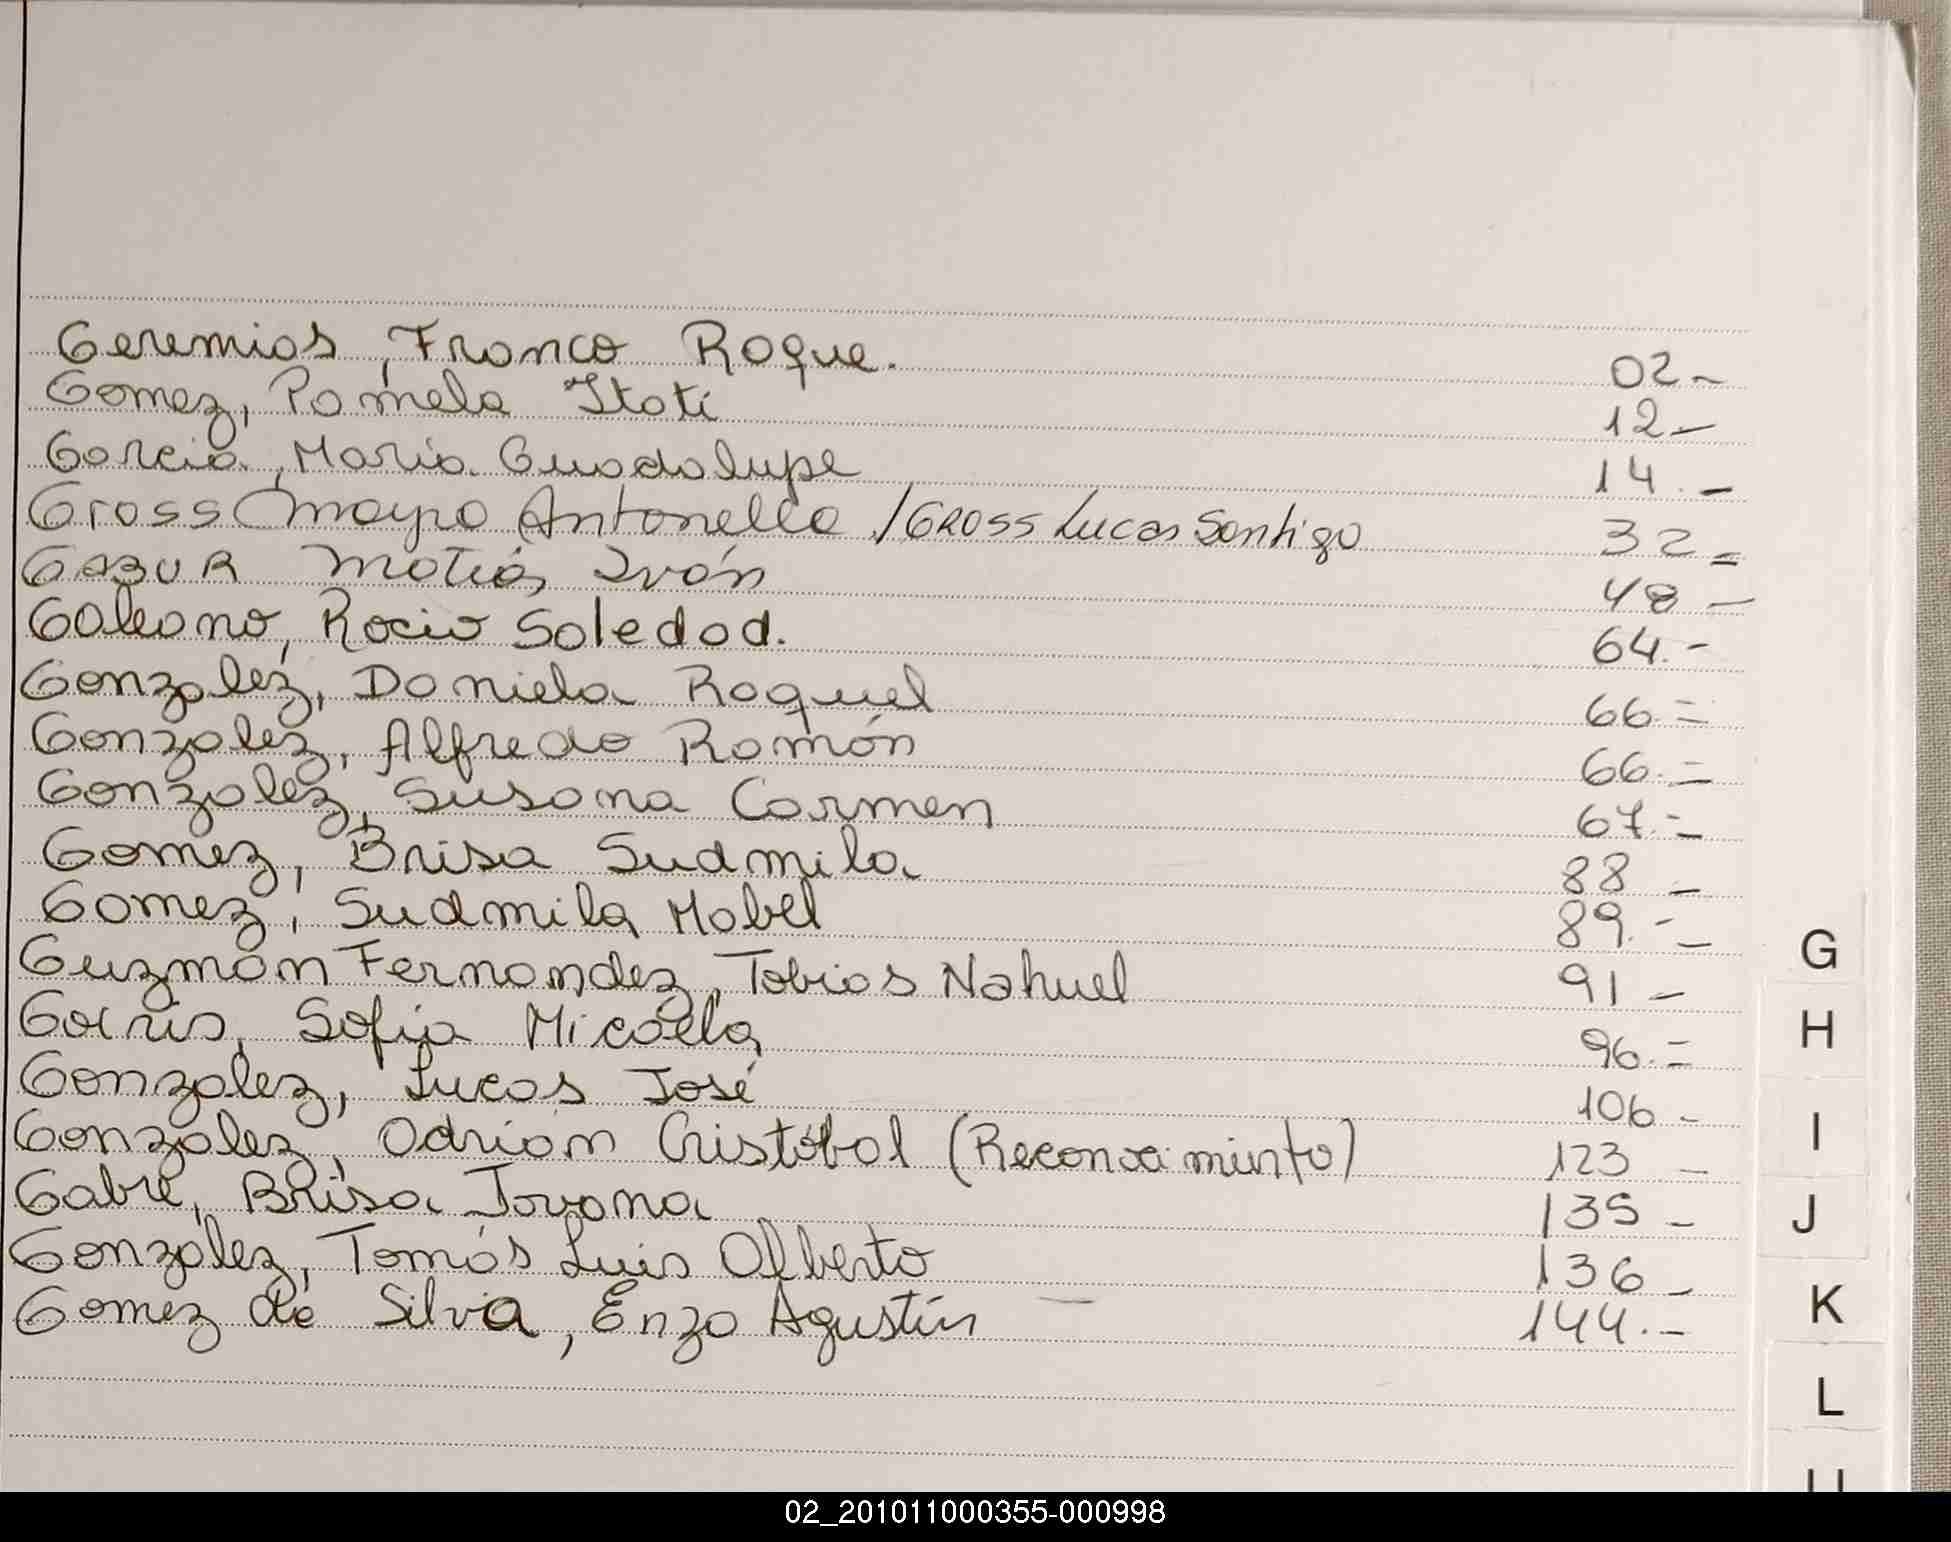 Geremias, Franco Roque. 02-
Gomez, Pamela Itati 12-
Garcia, Maria Guadalupe 14.-
Gross Mayra Antonella / GROSS Lucas Santigo 32=
GAZUR Matías Iván 48-
Galeano, Rocio Soledad. 64.-
Gonzalez, Daniela Raquel 66.=
Gonzalez, Alfredo Ramón 66.=
Gonzalez, Susana Carmen 67.=
Gomez, Brisa Ludmila 88-
Gomez, Ludmila Mabel 89.-
Guzmán Fernandez, Tobias Nahuel 91-
Goiris, Sofia Micaela 96.=
Gonzalez, Lucas José 106-
Gonzalez, Adrián Cristóbal (Reconocimiento) 123-
Gabre, Brisa Jovana 135-
Gonzalez, Tomás Luis Alberto 136-
Gomez de Silva, Enzo Agustín 144.-
G
H
I
J
K
L
02_201011000355-000998